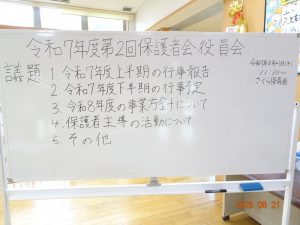 令和7年度第2回保護者会役員会
議題
1. 令和7年度上半期の行事報告
2. 令和7年度下半期の行事予定
3. 令和8年度の事業方針について
4. 保護者主導の活動について
5. その他
11:00〜
さくら保育園
2025 08 21